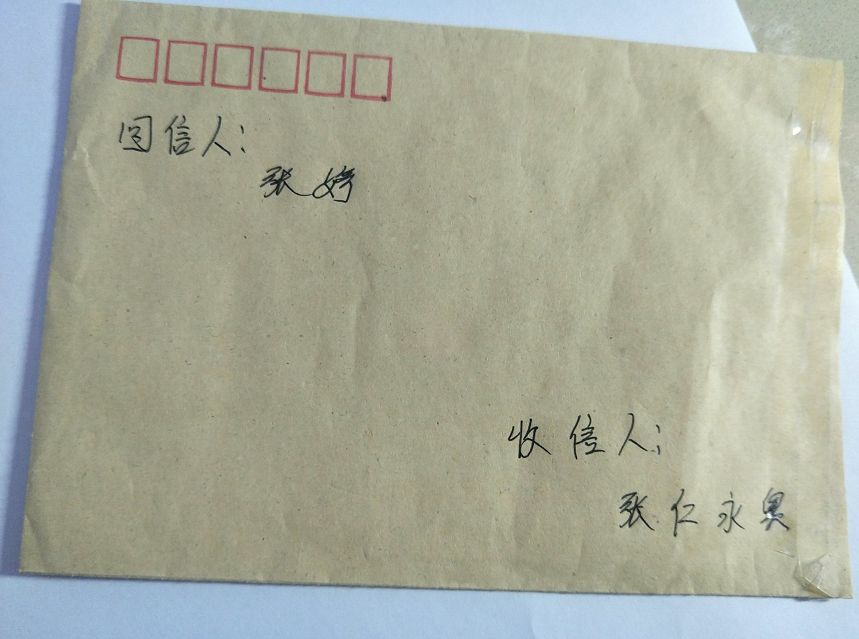 回信人：
张婷
收信人：
张仁永